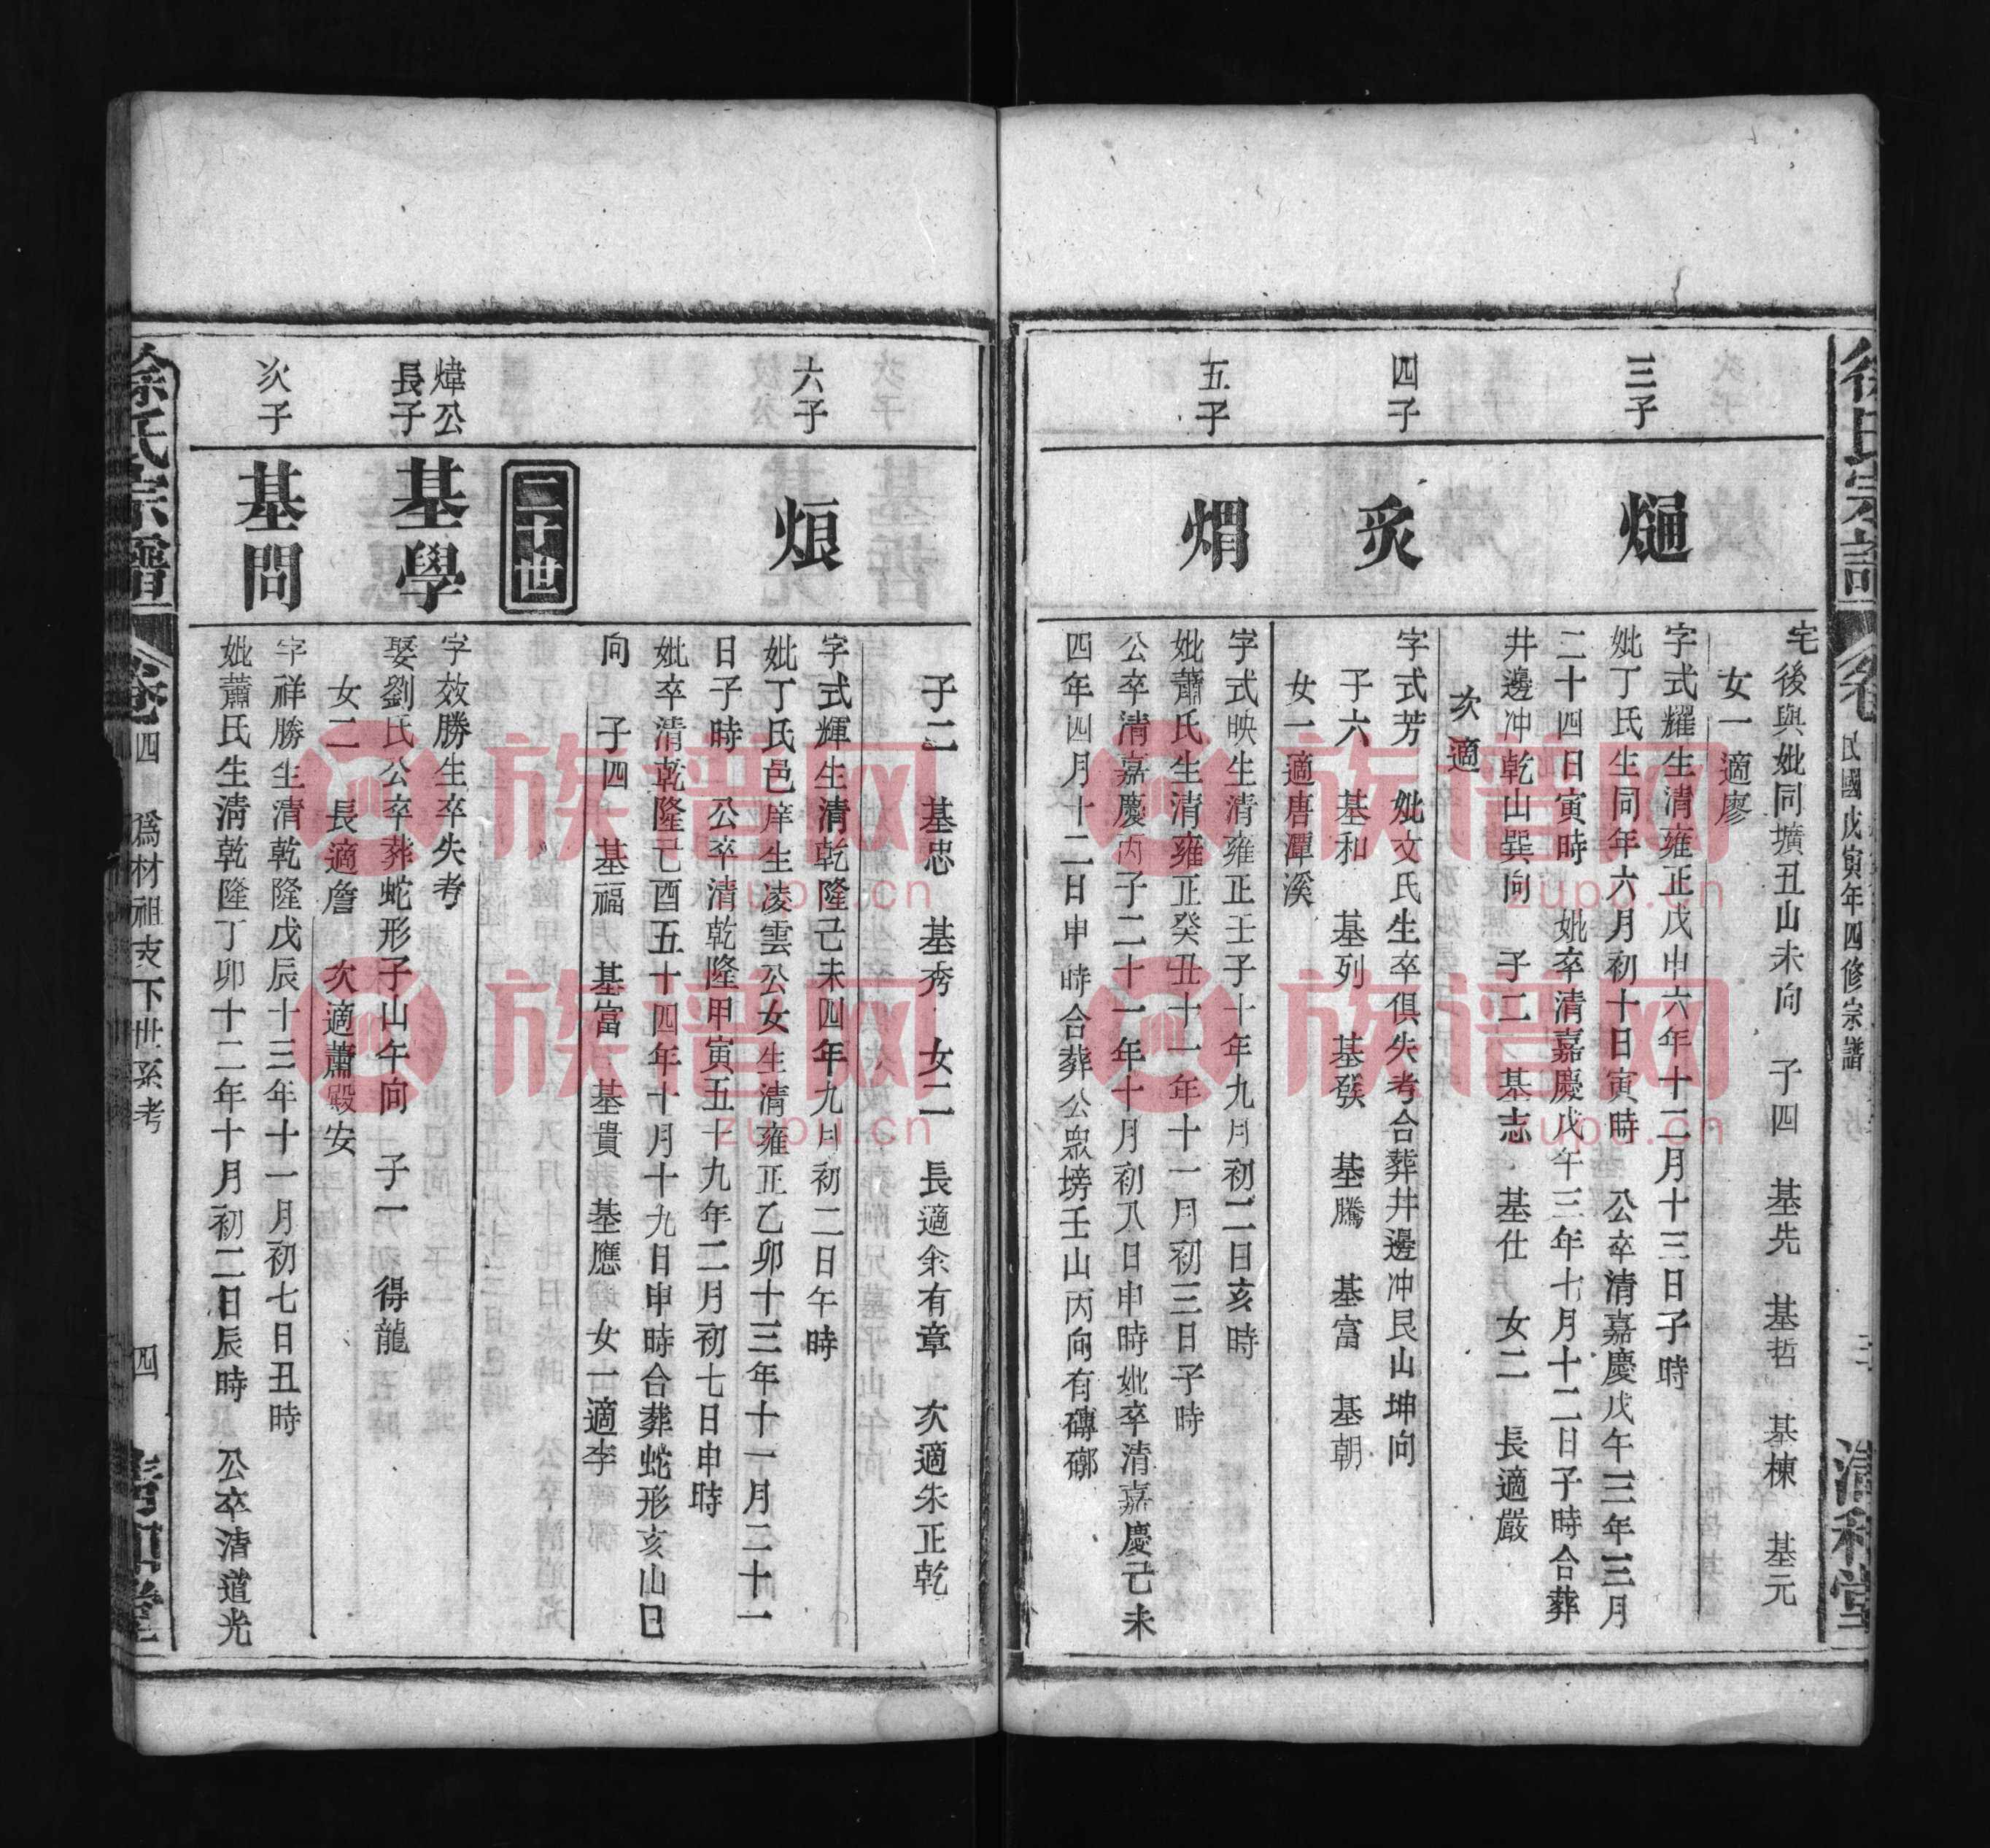 徐氏宗譜
民國戊寅年四修宗譜
三
清和堂
宅後與妣同擴丑山未向 子四 基先 基哲 基棟 基元
女一適廖
三子
字式耀生清雍正戊申六年十二月十三日子時
妣丁氏生同年六月初十日寅時 公卒清嘉慶戊午三年三月
二十四日寅時 妣卒清嘉慶戊午三年七月十二日子時合葬
井邊冲乾山巽向 子二 基志 基仕 女二 長適嚴
次適
四子
炙
字式芳 妣文氏生卒俱失考合葬井邊冲艮山坤向
子六 基和 基列 基發 基騰 基富 基朝
女一適唐潭溪
五子
焆
字式映生清雍正壬子十年九月初二日亥時
妣蕭氏生清雍正癸丑十一年十一月初三日子時
公卒清嘉慶丙子二十一年十月初八日申時妣卒清嘉慶己未
四年四月十二日申時合葬公衆塝壬山丙向有磚槨
子二 基忠 基秀 女二 長適余有章 次適朱正乾
六子
烺
字式輝生清乾隆己未四年九月初二日午時
妣丁氏邑庠生凌雲公女生清雍正乙卯十三年十一月二十一
日子時 公卒清乾隆甲寅五十九年二月初七日申時
妣卒清乾隆己酉五十四年十月十九日申時合葬蛇形亥山巳
向 子四 基福 基富 基貴 基應 女一適李
二十世
煒公長子
基學
字效勝生卒失考
娶劉氏公卒葬蛇形子山午向 子一 得龍
女二 長適詹 次適蕭殿安
次子
基問
字祥勝生清乾隆戊辰十三年十一月初七日丑時
妣蕭氏生清乾隆丁卯十二年十月初二日辰時 公卒清道光
徐氏宗譜
卷四
爲材祖支下世系考
四
清和堂
族谱网
zupu.cn
族谱网
zupu.cn
族谱网
zupu.cn
族谱网
zupu.cn